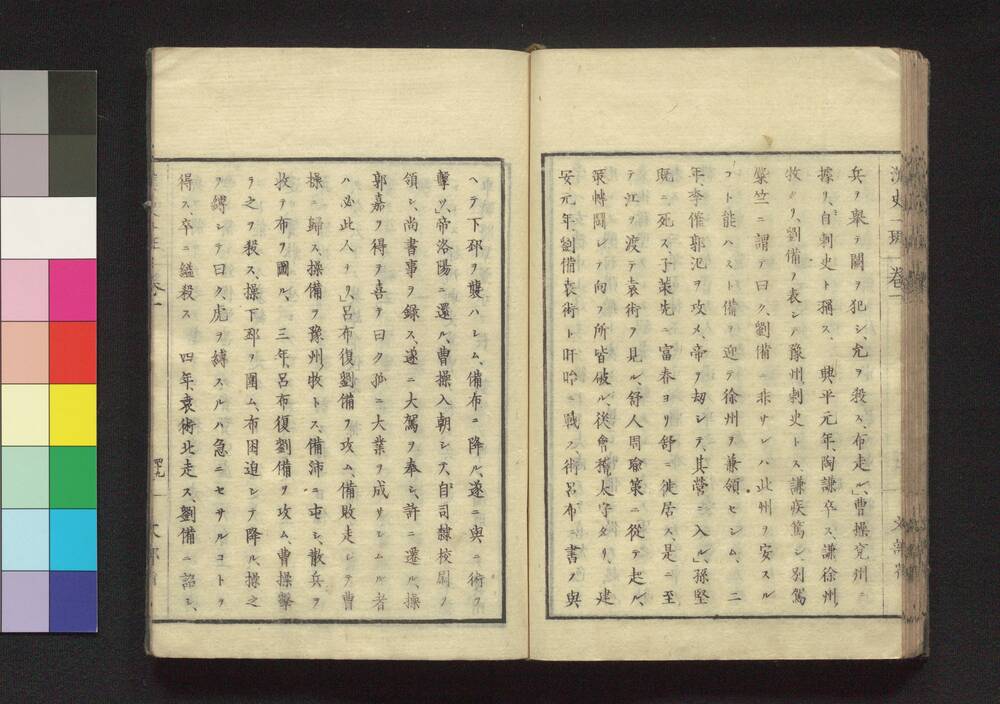 漢史一班 卷一
兵ヲ舉テ闕ヲ犯シ、允ヲ殺ス、布走ル、曹操兗州ニ
據リ、自刺史ト稱ス、 興平元年、陶謙卒ス、謙徐州
牧タリ、劉備ヲ表シテ豫州刺史トス、謙疾篤シ別駕
糜竺ニ謂テ曰ク、劉備ニ非サレハ此州ヲ安スル
コト能ハスト備ヲ迎テ徐州ヲ兼領セシム、 二
年李傕郭汜ヲ攻メ、帝ヲ劫シテ、其營ニ入ル、孫堅
既ニ死ス子策先ニ富春ヨリ舒ニ徙居ス、是ニ至
テ江ヲ渡テ袁術ヲ見ル、舒人周瑜策ニ從テ起ル、
策轉鬪シテ向フ所皆破ル、從會稽太守タリ、 建
安元年、劉備袁術ト盱眙ニ戰ス術呂布ニ書ヲ與
ヘテ下邳ヲ襲ハレム、備布ニ降ル、遂ニ與ニ術ヲ
擊ツ、帝洛陽ニ還ル、曹操入朝シテ、自司隸校尉ヲ
領シ、尚書事ヲ録ス、遂ニ大駕ヲ奉シ、許ニ遷ル、操
郭嘉ヲ得ヲ喜テ曰ク孤ニ大業ヲ成サシムル者
ハ必此人ナリ、呂布復劉備ヲ攻ム、備敗走シテ曹
操ニ歸ス操備ヲ豫州牧トス、備沛ニ屯シ、散兵ヲ
收ヲ布ヲ圖ル、 三年、呂布復劉備ヲ攻ム、曹操擊
ヲ之ヲ殺ス、操下邳ヲ圍ム、布困迫シテ降ル、操之
ヲ縛シテ曰ク、虎ヲ縛スルハ急ニセサルコトヲ
得ス、卒ニ縊殺ス 四年、袁術北走ス、劉備ニ詔シ、
四九